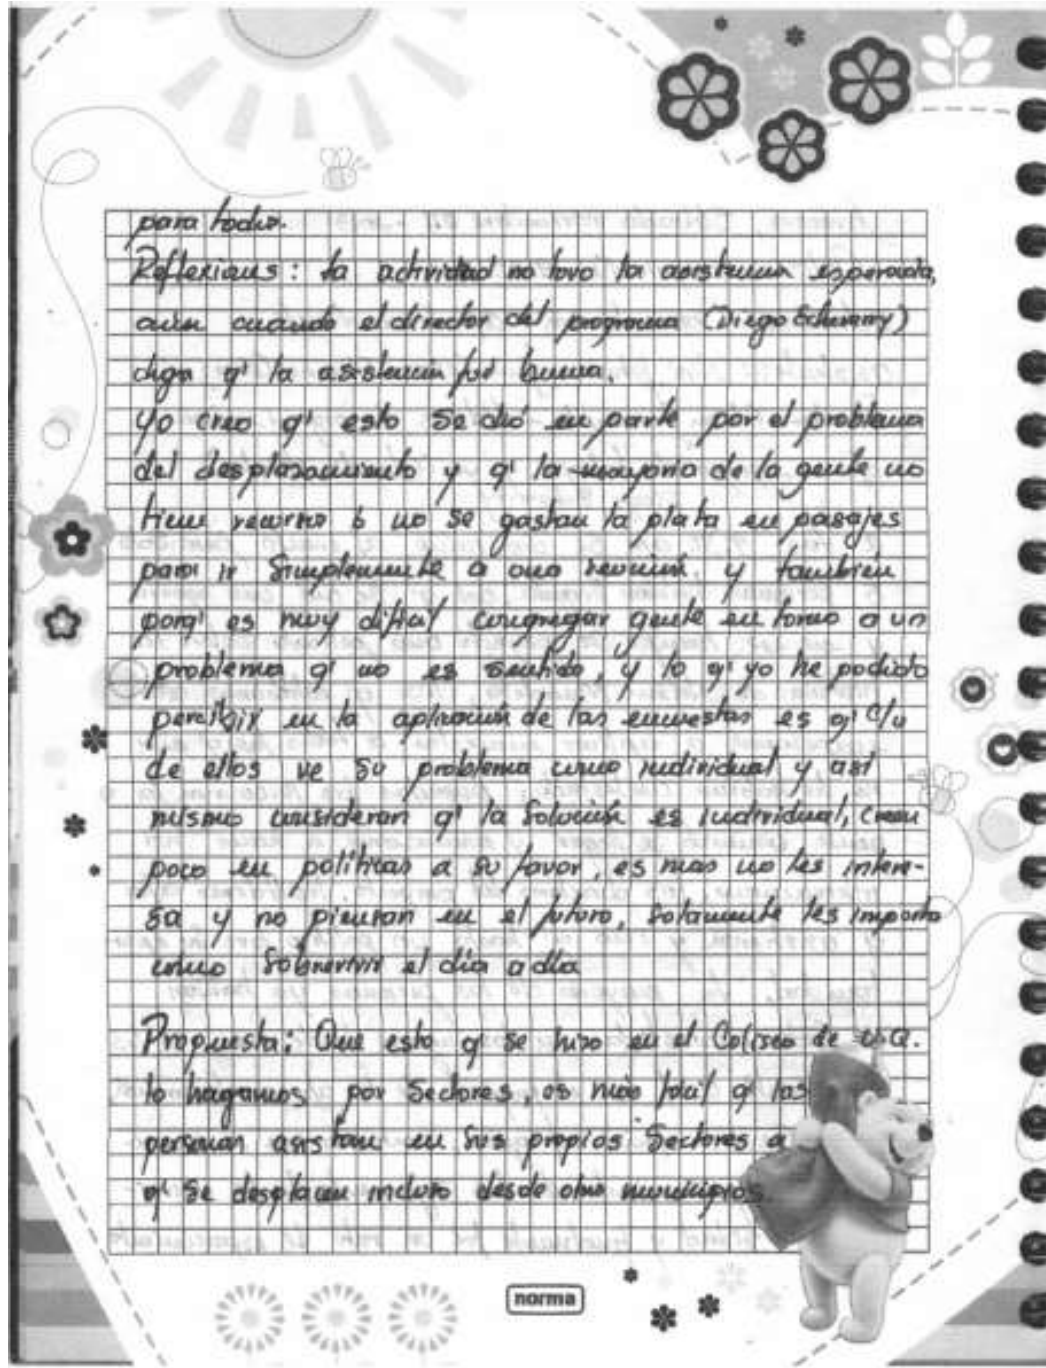 para todos.
Reflexiones: la actividad no tuvo la asistencia esperada,
aún cuando el director del programa (Diego Echeverry)
diga q' la asistencia fué buena.
Yo creo q' esto se dió en parte por el problema
del desplazamiento y q' la mayoria de la gente no
tiene recursos ó no se gastan la plata en pasajes
para ir simplemente a una reunión. y también
porq' es muy difícil congregar gente en torno a un
problema q' no es sentido, y lo q' yo he podido
percibir en la aplicación de las encuestas es q' c/u
de ellos ve su problema como individual y asi
mismo consideran q' la solución es individual, creen
poco en políticas a su favor, es mas no les intere-
sa y no piensan en el futuro, solamente les importa
como sobrevivir el día a día
Propuesta: Que esto q' se hizo en el Coliseo de
lo hagamos por sectores, es más fácil q' las
personas asistan en sus propios sectores a
q' se desplacen incluso desde otros municipios.
norma